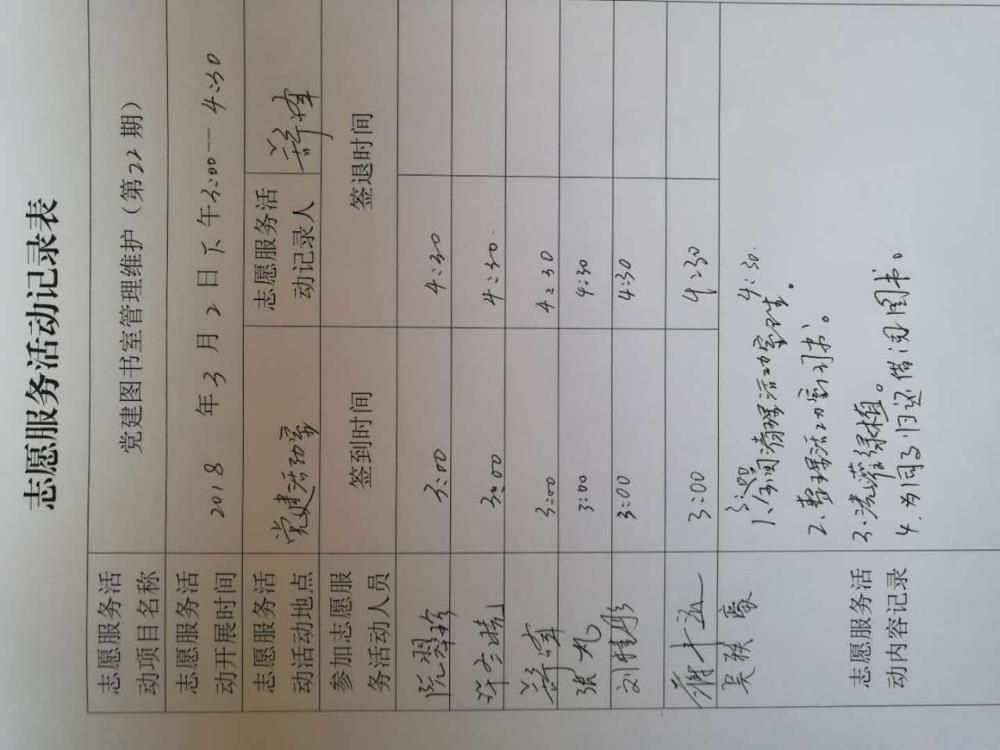 志愿服务活动记录表
志愿服务活
动项目名称
党建图书室管理维护（第22期）
志愿服务活
动开展时间
2018 年 3 月 2 日下午3:00--4:30
志愿服务活
动活动地点
党建活动室
志愿服务活
动记录人
参加志愿服
务活动人员
签到时间
签退时间
阮翠珍 3:00 4:30
3:00 4:30
3:00 4:30
3:00 4:30
3:00 4:30
3:00 4:30
吴秩豪 3:00 4:30
志愿服务活
动内容记录
1、清理活动室卫生。
2、整理活动室图书。
3、浇灌绿植。
4、为同了归还借阅图书。